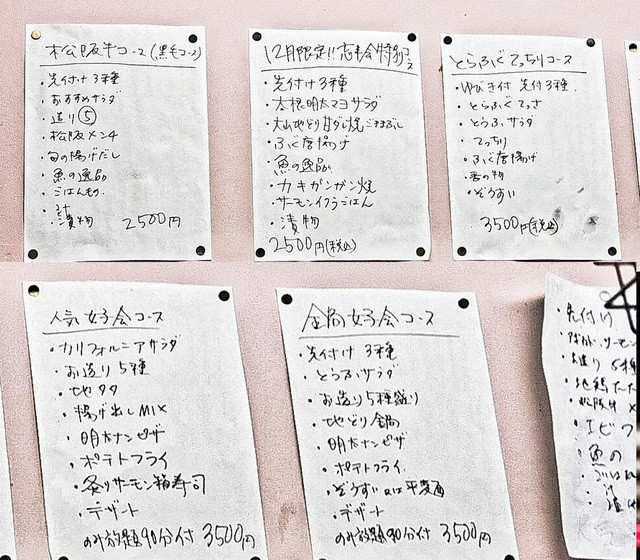 松阪牛コース(黒毛コース)
・先付け3種
・おすすめサラダ
・造り⑤
・松阪メンチ
・旬の揚げだし
・魚の逸品
・ごはんもの
・汁
・漬物 2500円
12月限定!!忘年会特別コース
・先付け3種
・大根明太マヨサラダ
・大山地どり甘ダレ焼ごままぶし
・ふぐ唐揚げ
・魚の逸品
・カキガンガン焼
・サーモンイクラごはん
・漬物
2500円(税込)
とらふぐてっちりコース
・ゆびき付 先付3種
・とらふぐてっさ
・とうふサラダ
・てっちり
・ふぐ唐揚げ
・香の物
・ぞうすい
3500円(税込)
人気女子会コース
・カリフォルニアサラダ
・お造り5種
・地タタ
・揚げ出しMIX
・明太ナンピザ
・ポテトフライ
・炙りサーモン箱寿司
・デザート
のみ放題90分付 3500円
金鍋女子会コース
・先付け 3種
・とうふサラダ
・お造り5種盛り
・地どり鍋
・明太ナンピザ
・ポテトフライ
・ぞうすい又は平麺
・デザート
のみ放題90分付 3500円
・先付け
サーモン
・お造り 5種
・地鶏たた
・エビフ
・魚の
・ごはん
・汁
・漬